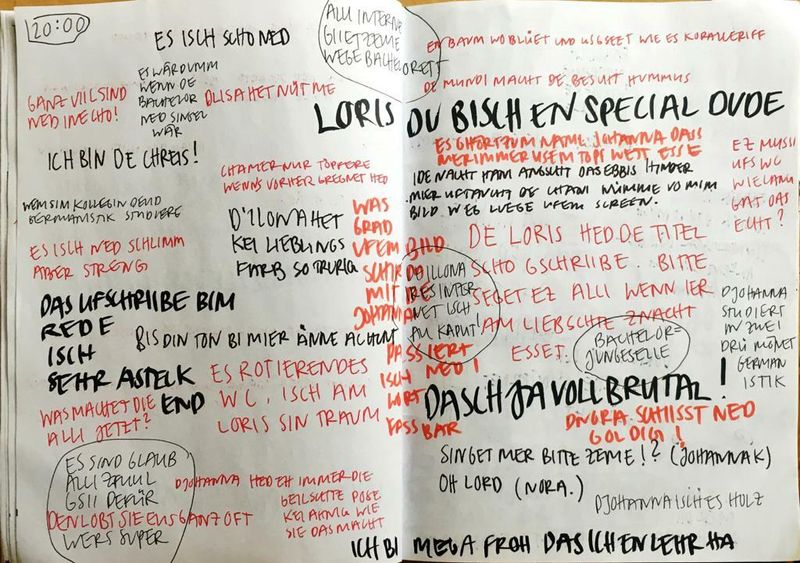 20:00
ES ISCH SCHO NED
ALLI INTERNE
GIIET ZEME
WEGE BACHELORETT
GANZ VIIL SIND
NED INECHO!
ES WÄR DUMM
WENN DE
BACHELOR
NED SINGEL
WÄR
D'LISA HET NÜT ME
ICH BIN DE CHREIS!
CHAMER NUR TÖPFERE
WENNS VORHER GREGNET HED
WEM SIM KOLLEGIN DEUD
GERMANISTIK STUDIERE
D'ILONA HET
KEI LIEBLINGS
FARB SO TRURIG
ES ISCH NED SCHLIMM
ABER STRENG
WAS
GRAD
UFEM BILD
SCHIR DO
MIT DE
JOHANNA
PASSIERT
ISCH NED
WORT
FASSBAR
DAS UFSCHRIIBE BIM
REDE
ISCH
SEHR ASTELK
END
BIS DIN TON BI MIER ÄNNE ACHUNT
ES ROTIERENDES
WC, ISCH AM
LORIS SIN TRAUM
WAS MACHET DIE
ALLI JETZT?
ES SIND GLAUB
ALLI ZFUUL
GSII DEFÜR
DENLOBT SIE EUS GANZ OFT
WERS SUPER
DJOHANNA HED EH IMMER DIE
GEILSCHTE POSE
KEI AHNIG WIE
SIE DAS MACHT
EN BAUM WO BLÜET UND USGSEET WIE ES KORALLERIFF
DE MUNDI MACHT DE BESCHT HUMMUS
LORIS DU BISCH EN SPECIAL DUDE
ES GHÖRT ZUM NAME JOHANNA DASS
MER IMMER USEM TOPF WETT ESSE
IDE NACHT HAN ANGSCHT DAS EBBIS HINDER
MIER UFTAUCHT DE CHANI NÜMME VO MIM
BILD WEG LUEGE UFEM SCREEN.
EZ MUSSI
UFS WC
WIE LANG
GAT DAS
ECHT?
DE LORIS HED DE TITEL
SCHO GSCHRIIBE. BITTE
SEGET EZ ALLI WENN IER
AM LIEBSCHTE ZNACHT
ESSET.
DO ILLONA
RES INTER
NET ISCH
AM KAPUT!
BACHELOR =
JUNGESELLE
DJOHANNA
STUDIERT
IN ZWEI
DRÜ MÖNET
GERMAN
ISTIK
DASCH JA VOLL BRUTAL!
DNORA SCHIISST NED
GOLDIG!
SINGET MER BITTE ZEME!? (JOHANNA K)
OH LORD (NORA.)
DJOHANNA ISCH ES HOLZ
ICH BI MEGA FROH DAS ICH EN LEHR HA